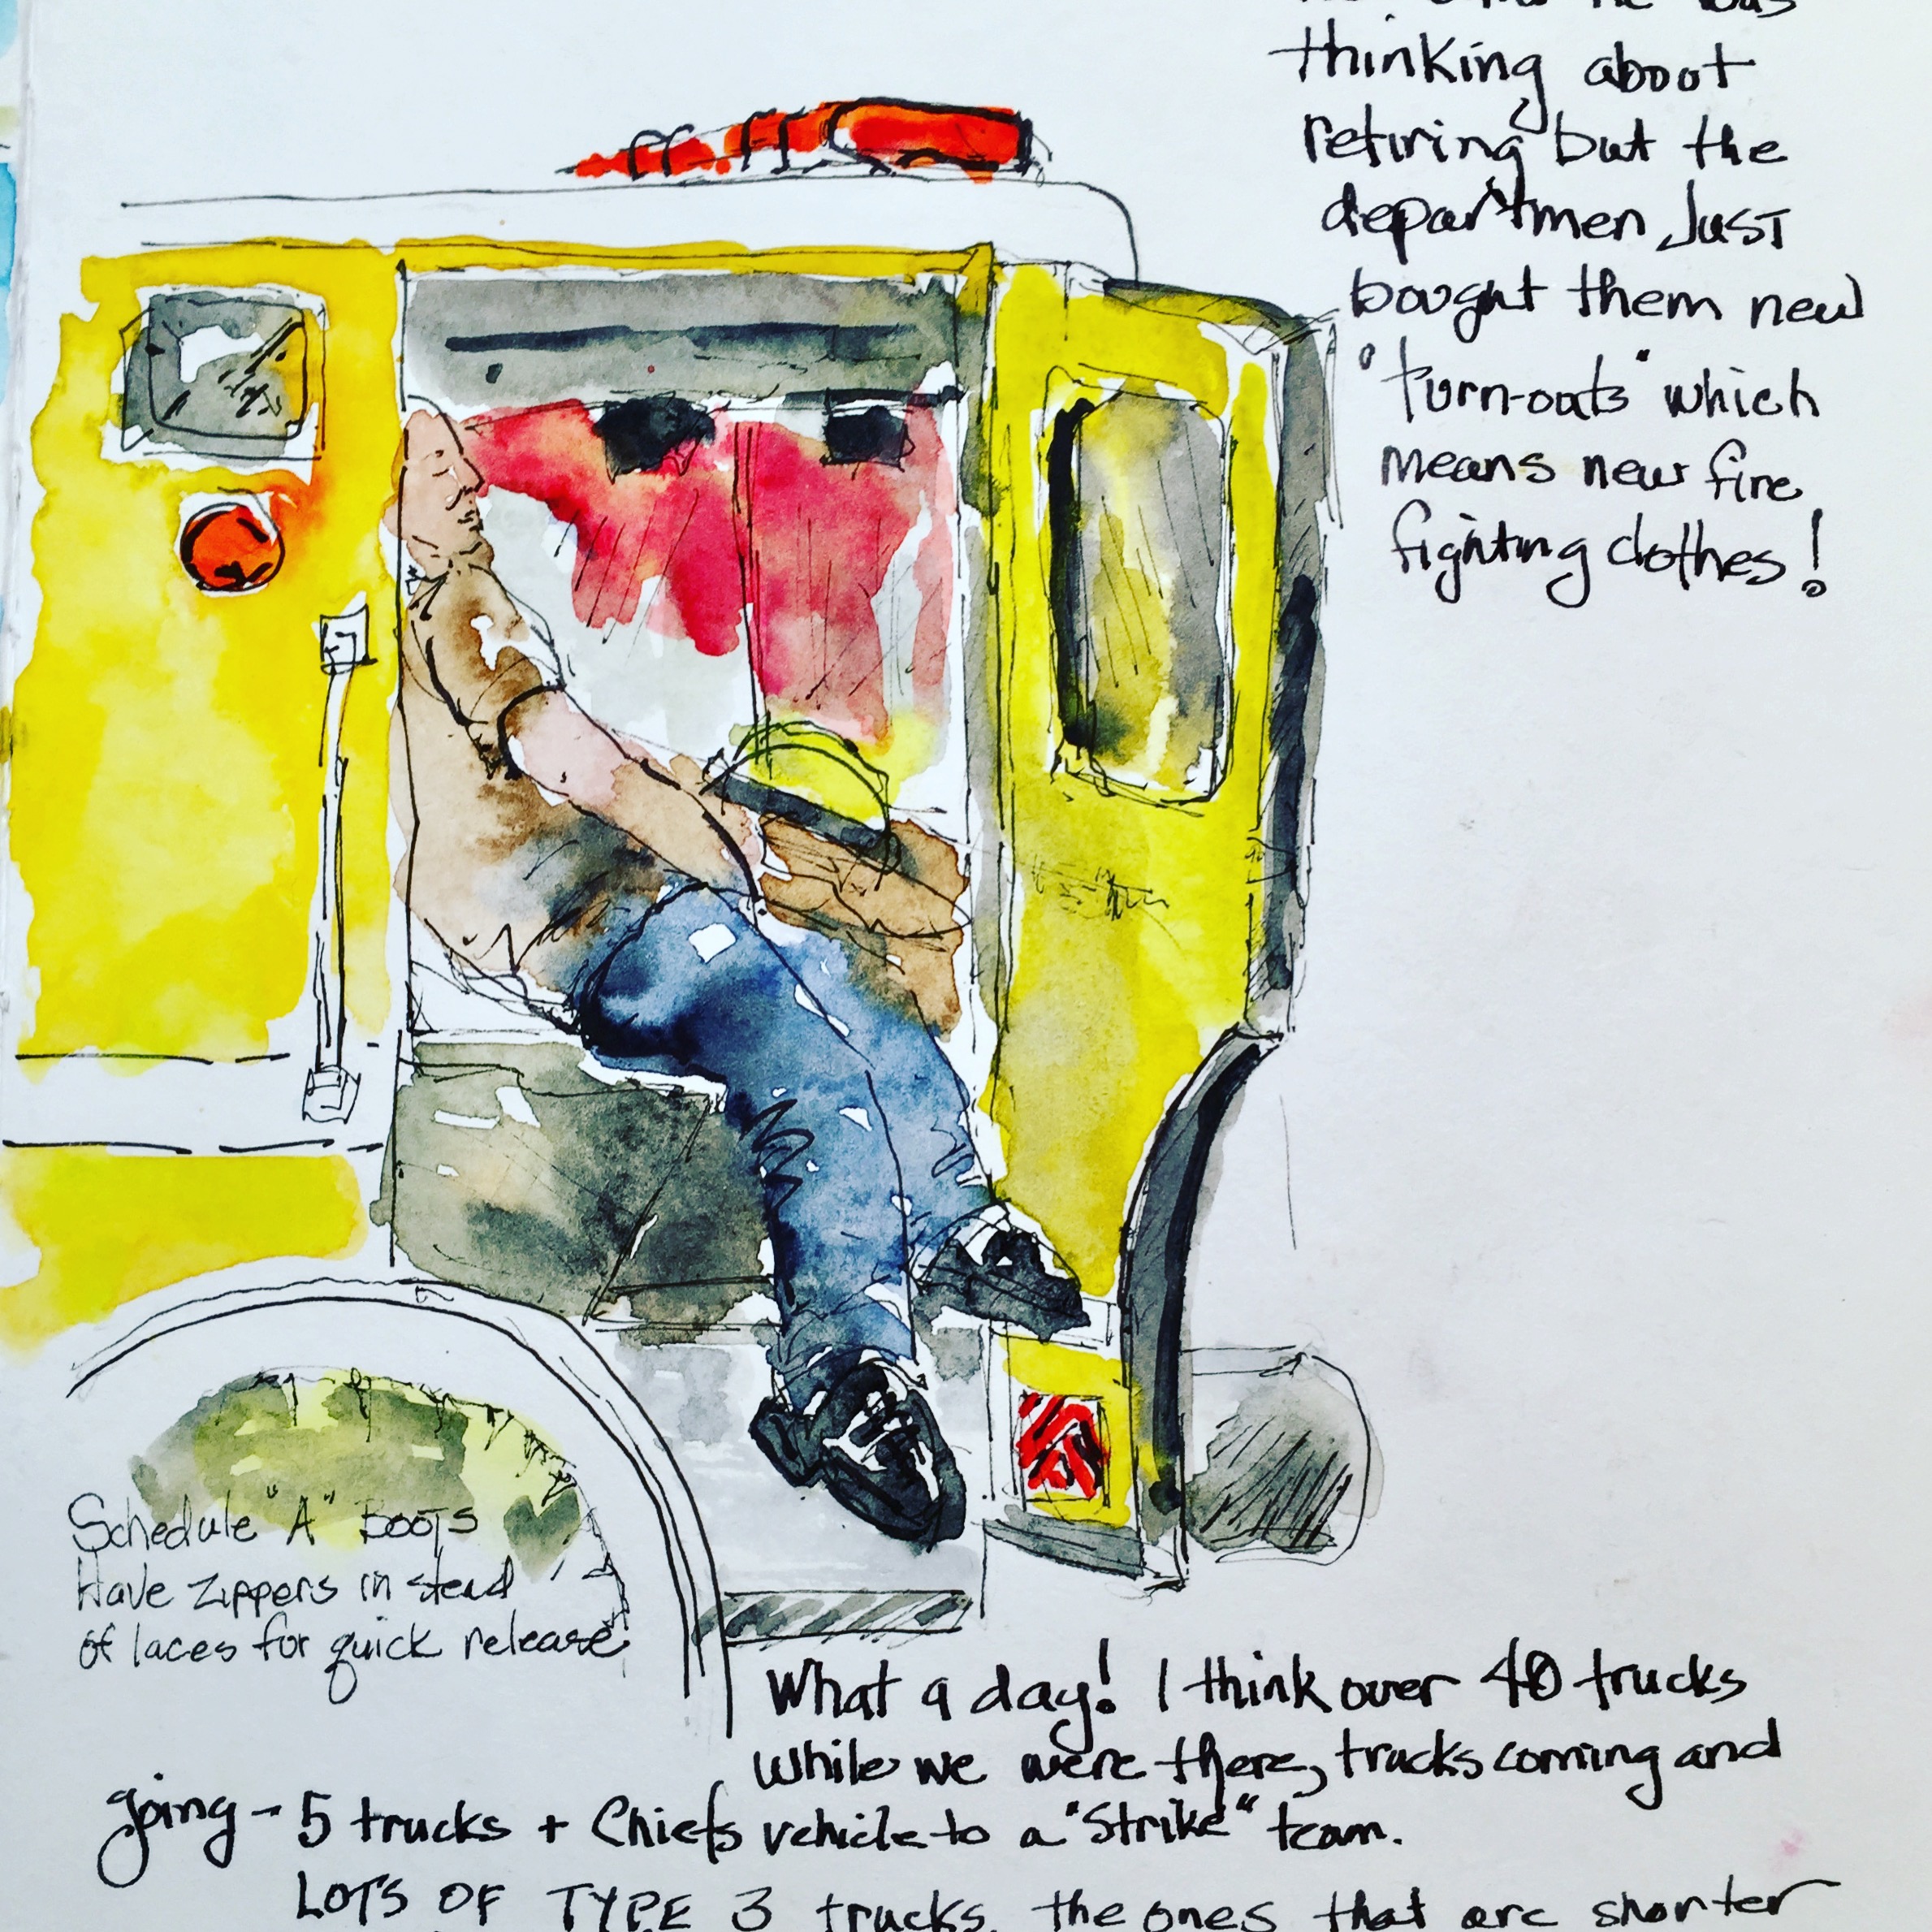 he was
thinking about
retiring but the
departmen Just
bought them new
"turn-outs" which
means new fire
fighting clothes!
Schedule "A" Boots
Have zippers in stead
of laces for quick release
What a day! I think over 40 trucks
while we were there, trucks coming and
going - 5 trucks + Chiefs vehicle to a "Strike" team.
LOTS OF TYPE 3 trucks, the ones that are shorter